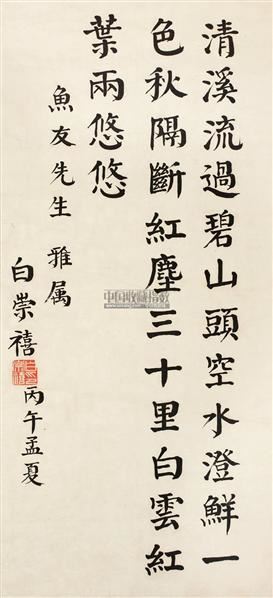 清溪流過碧山頭空水澄鮮一
色秋隔斷紅塵三十里白雲紅
葉兩悠悠
魚友先生 雅属
白崇禧
丙午孟夏
中国收藏指数